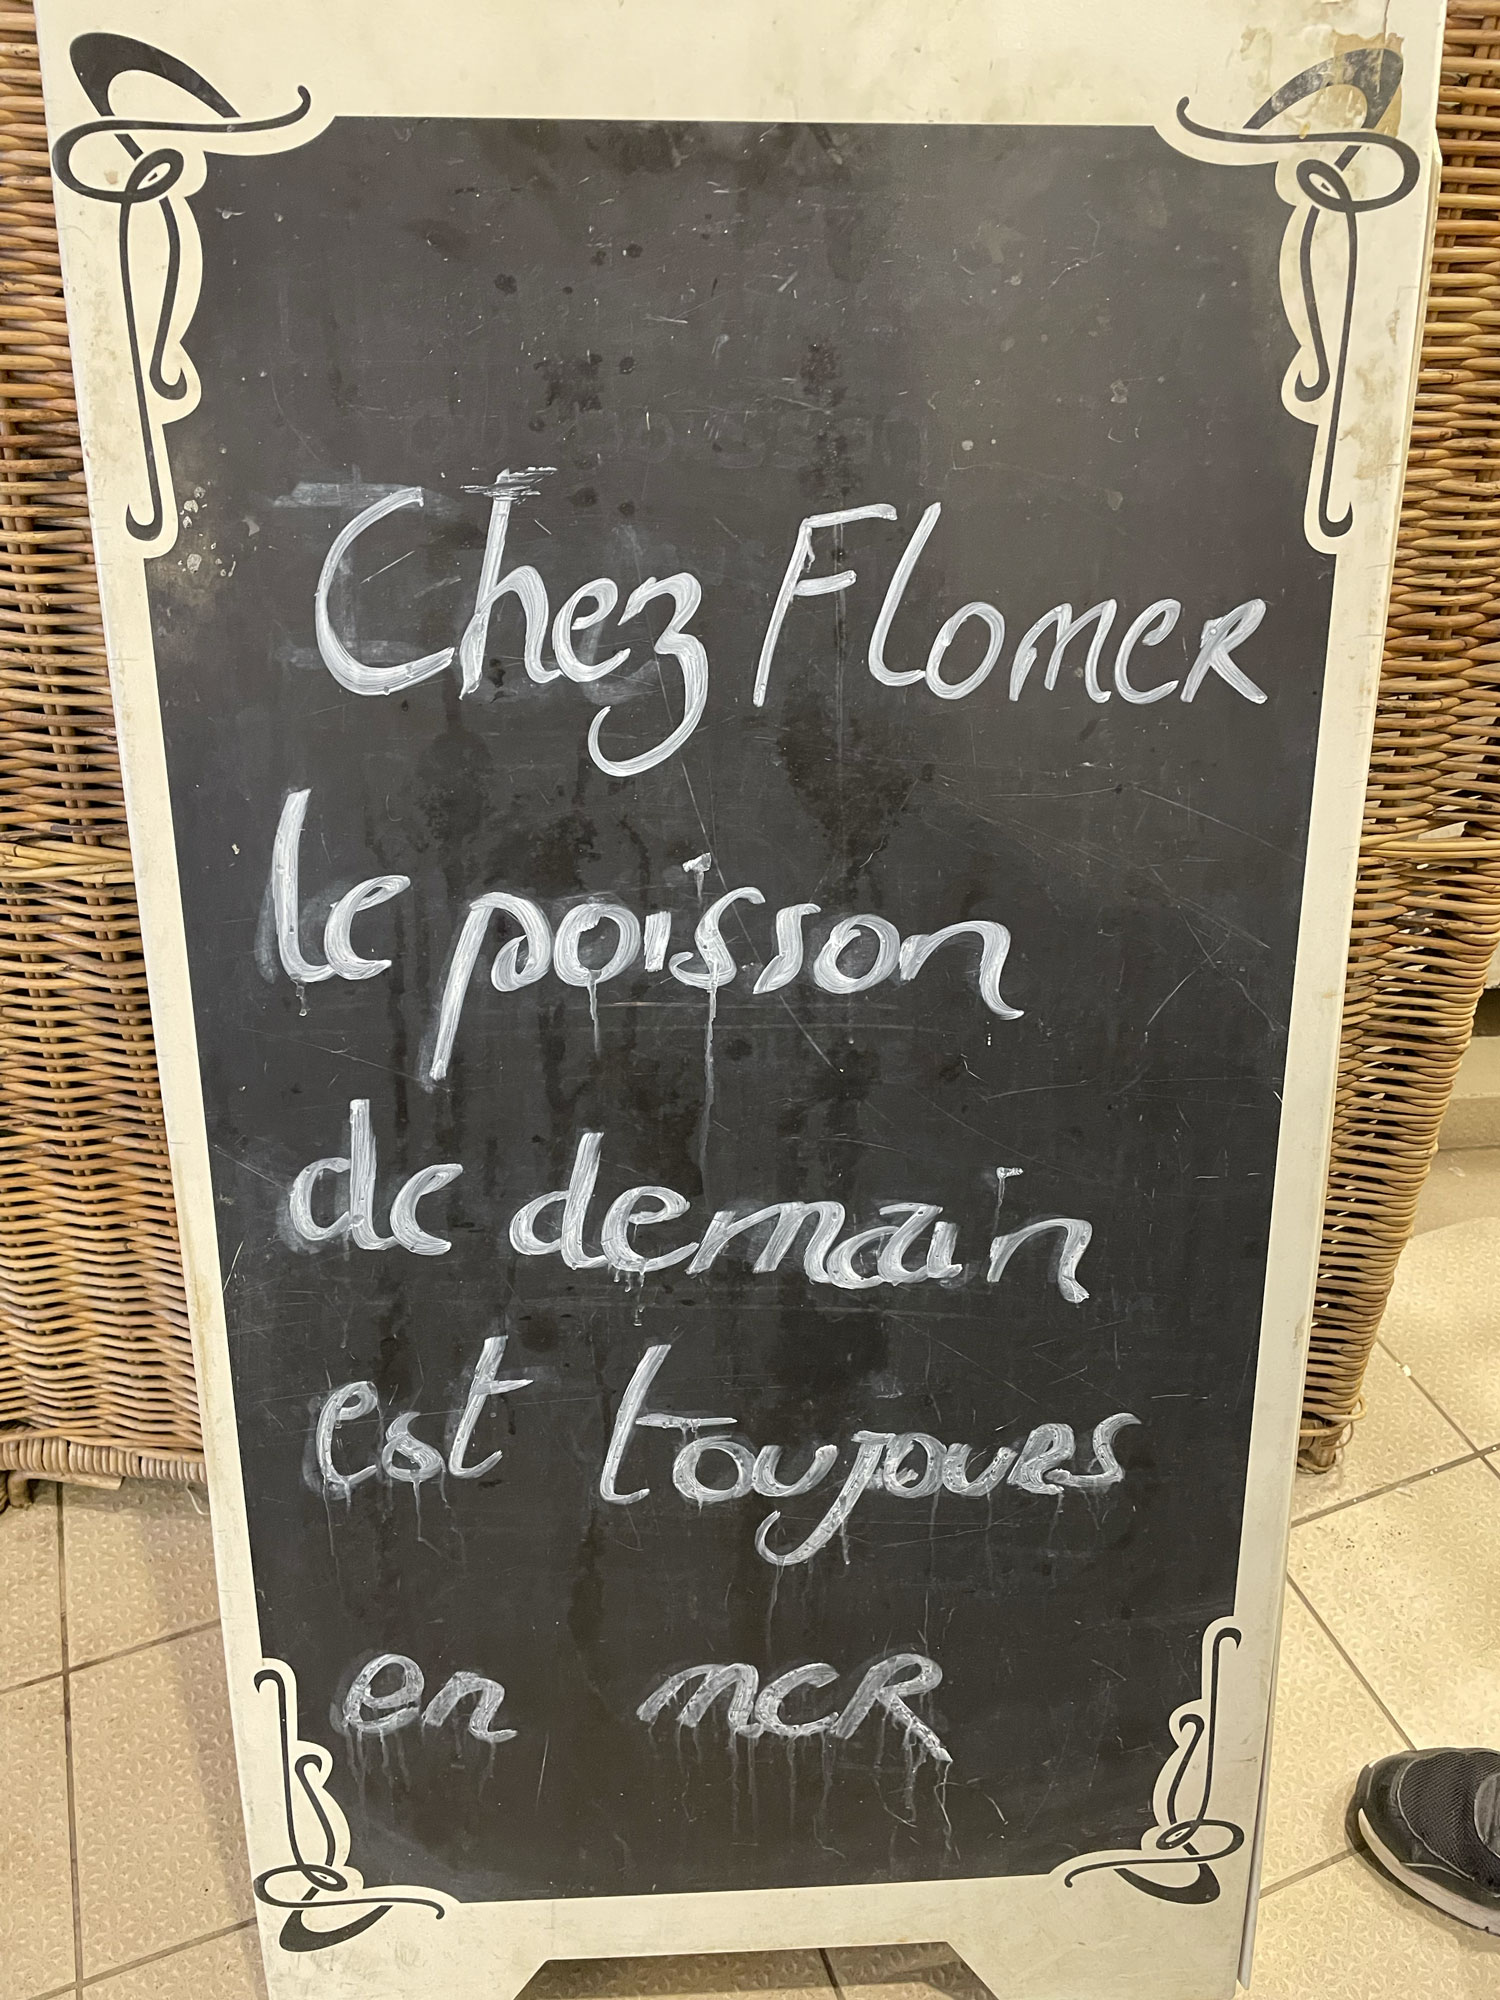 Chez Flomer
le poisson
de demain
est toujours
en mer